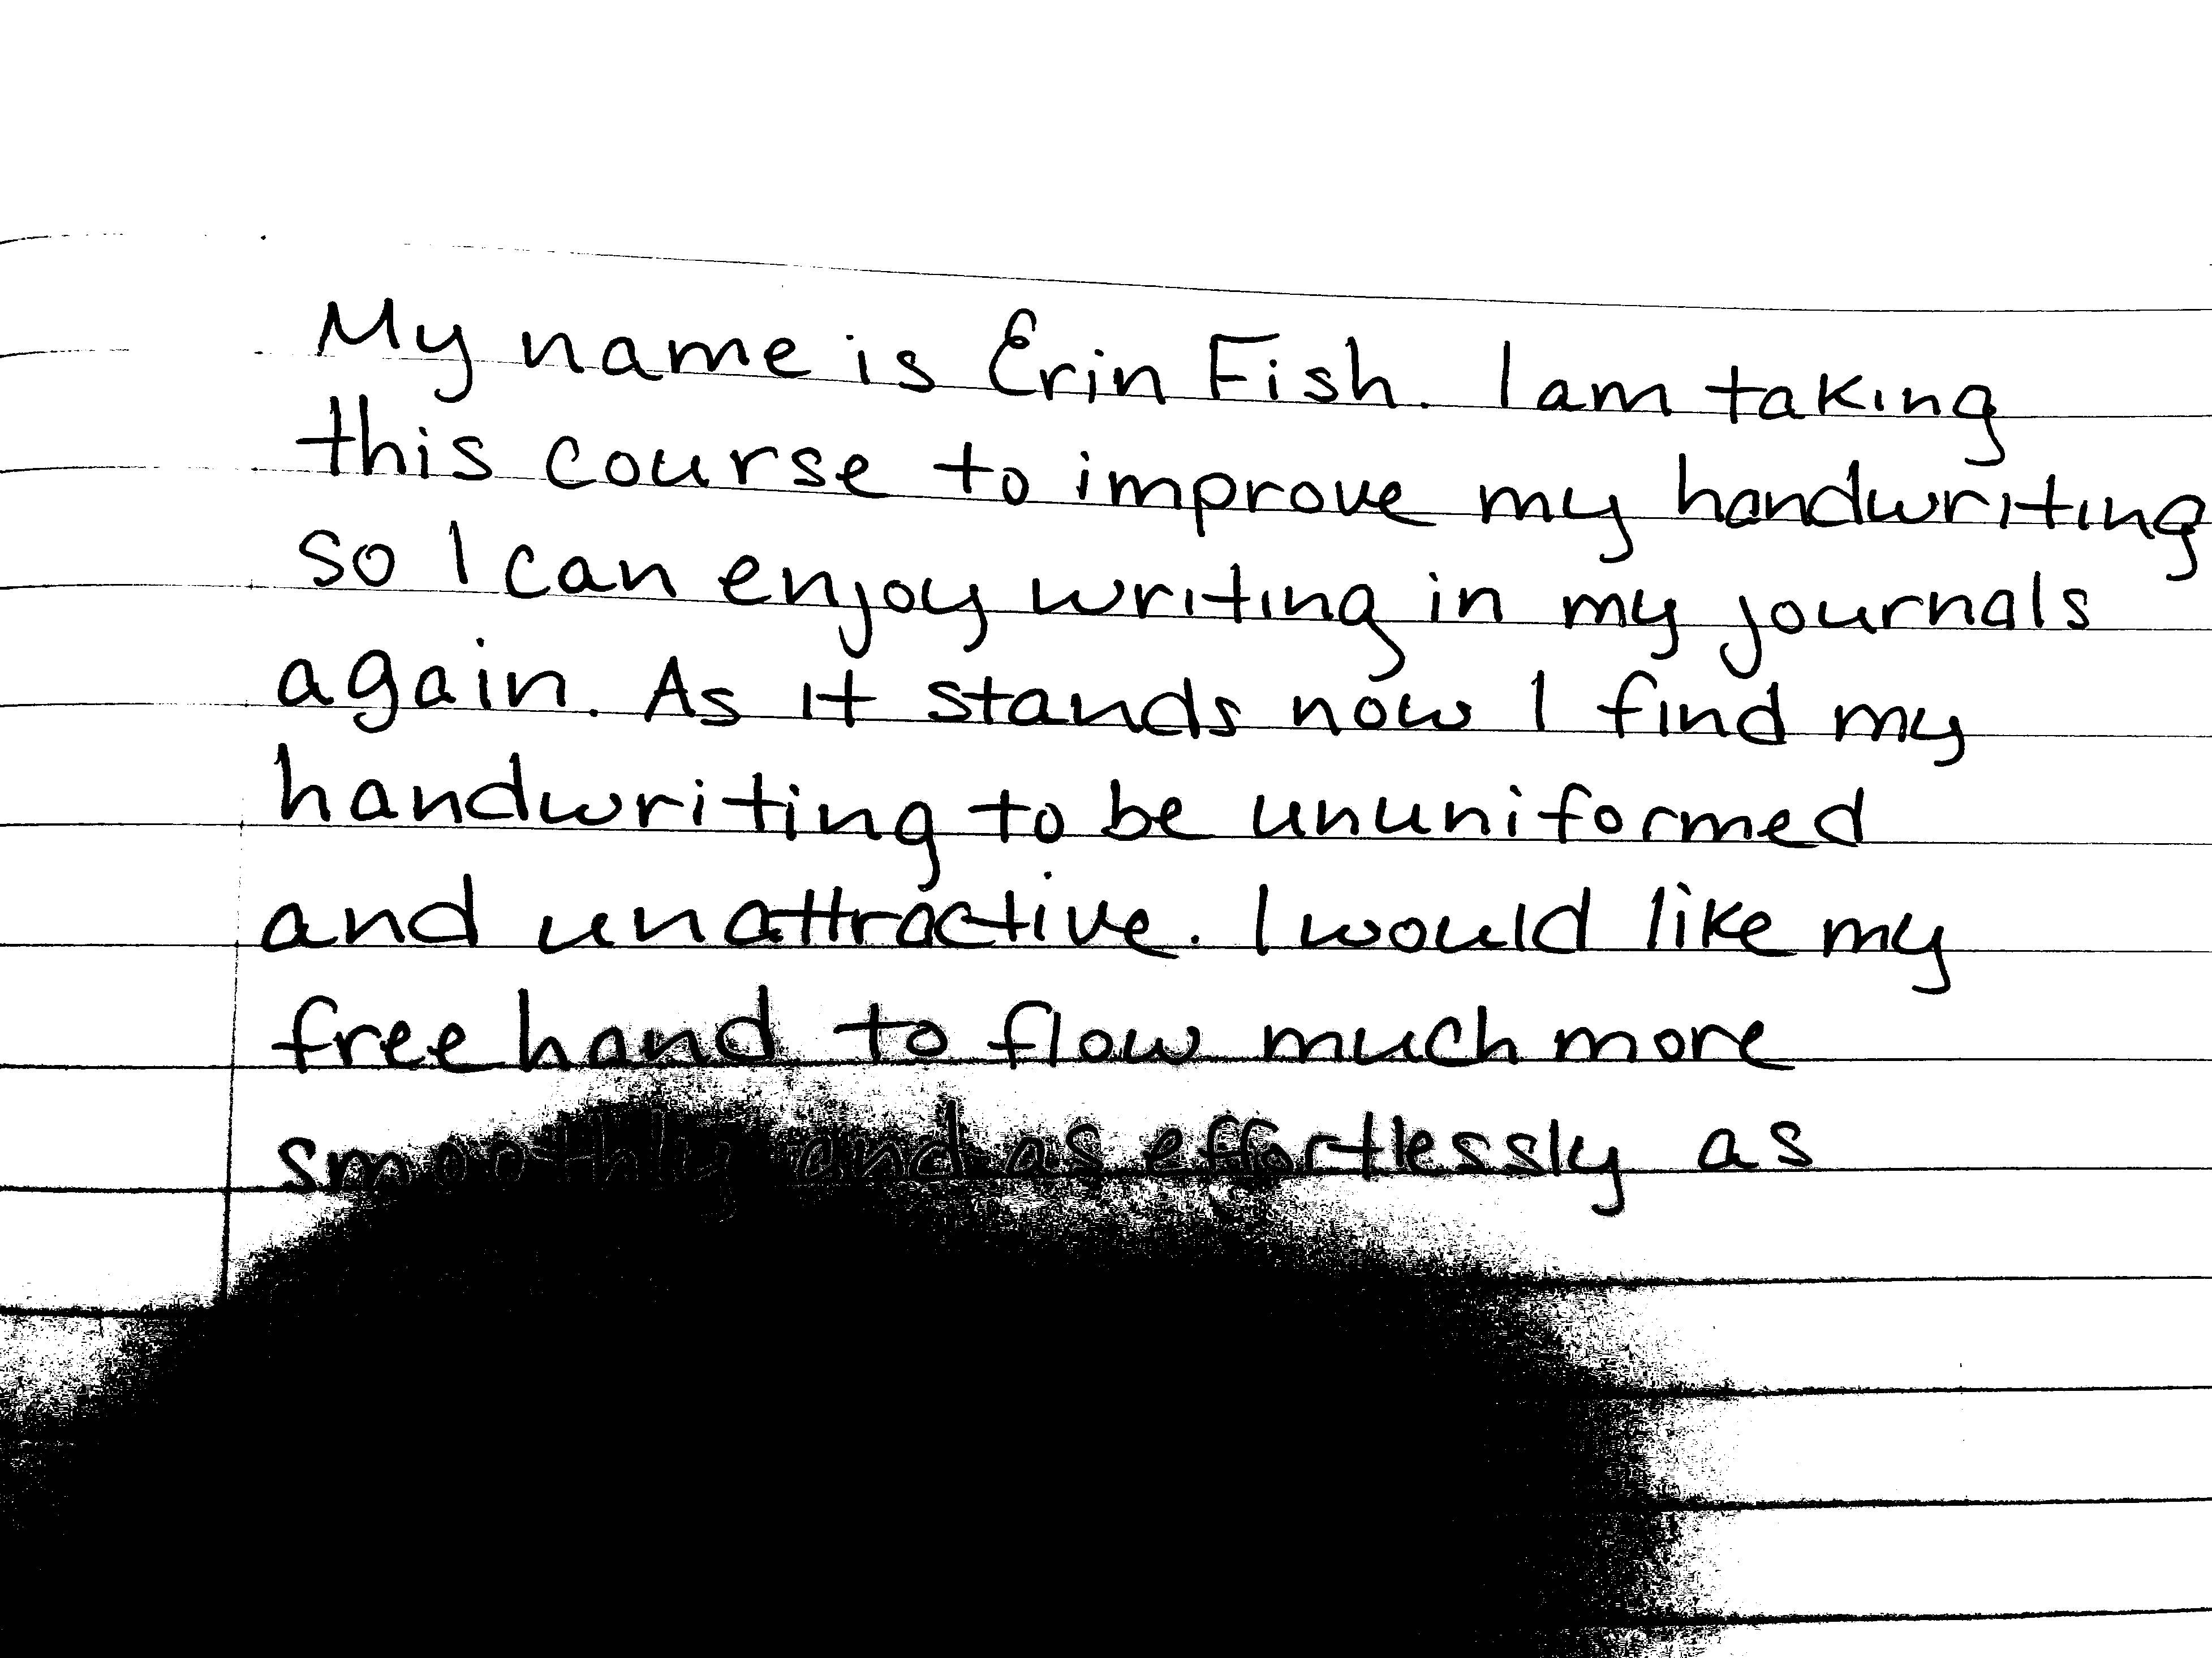 My name is Erin Fish. I am taking
this course to improve my handwriting
so I can enjoy writing in my journals
again. As it stands now I find my
handwriting to be ununiformed
and unattractive. I would like my
free hand to flow much more
smoothly and as effortlessly as